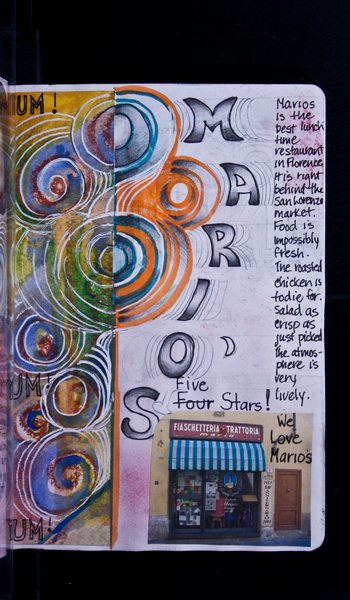 UM!
MARIO'S
Marios
is the
best lunch
time
restaurant
in Florence.
It is right
behind the
San Lorenzo
market.
Food is
impossibly
fresh.
The roasted
chicken is
to die for.
Salad as
crisp as
just picked.
The atmos-
phere is
very
lively.
Five
Four Stars!
We
Love
Marios
FIASCHETTERIA - TRATTORIA
MARIO
UM!
UM!